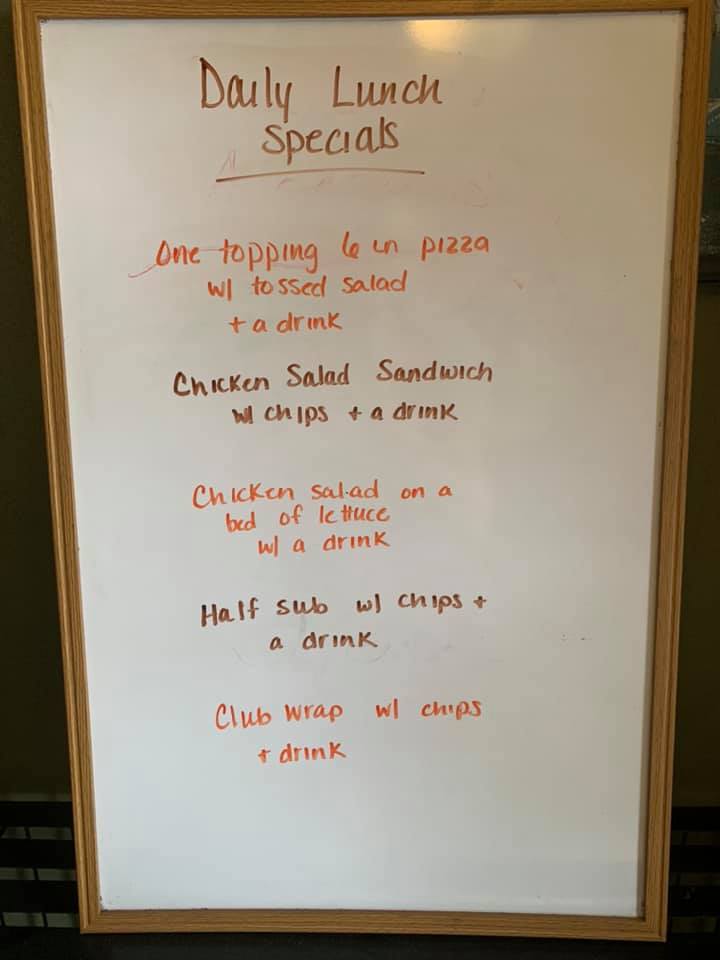 Daily Lunch
Specials
One topping 6 in pizza
w/ tossed salad
+ a drink
Chicken Salad Sandwich
w/ chips + a drink
Chicken salad on a
bed of lettuce
w/ a drink
Half sub w/ chips +
a drink
Club wrap w/ chips
+ drink